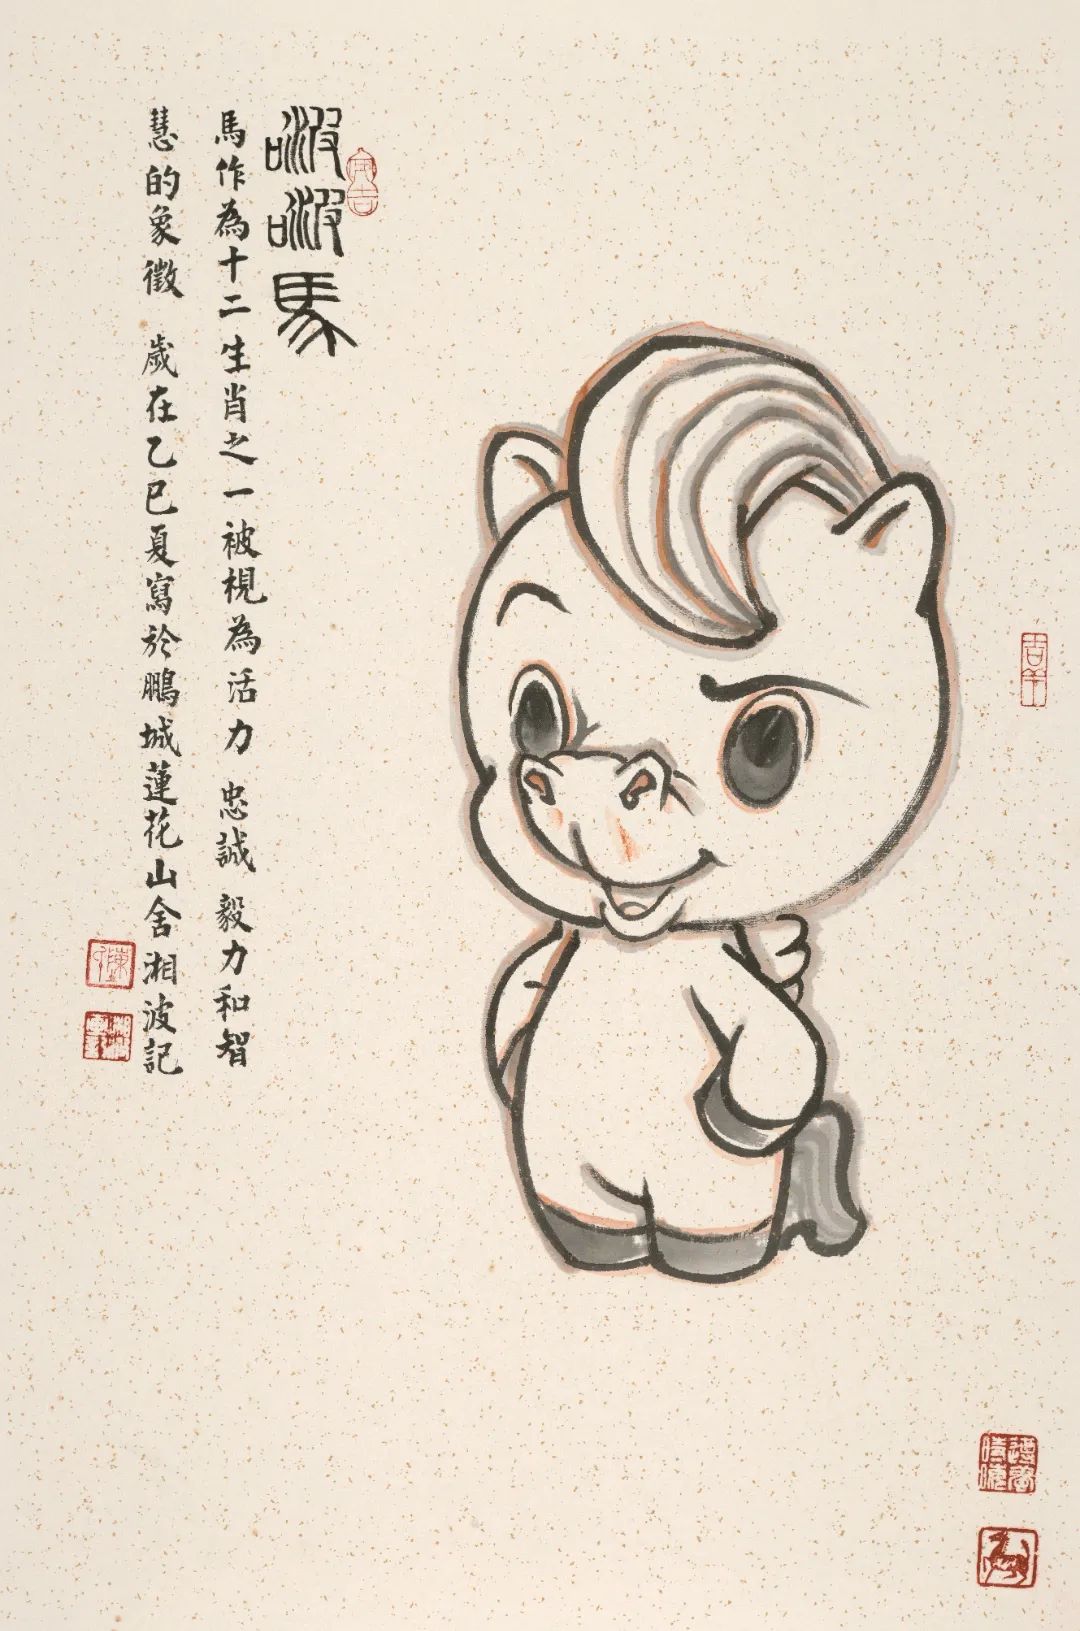 啵啵馬
馬作為十二生肖之一被視為活力 忠誠 毅力和智
慧的象徵 歲在乙巳夏寫於鵬城蓮花山舍湘波記